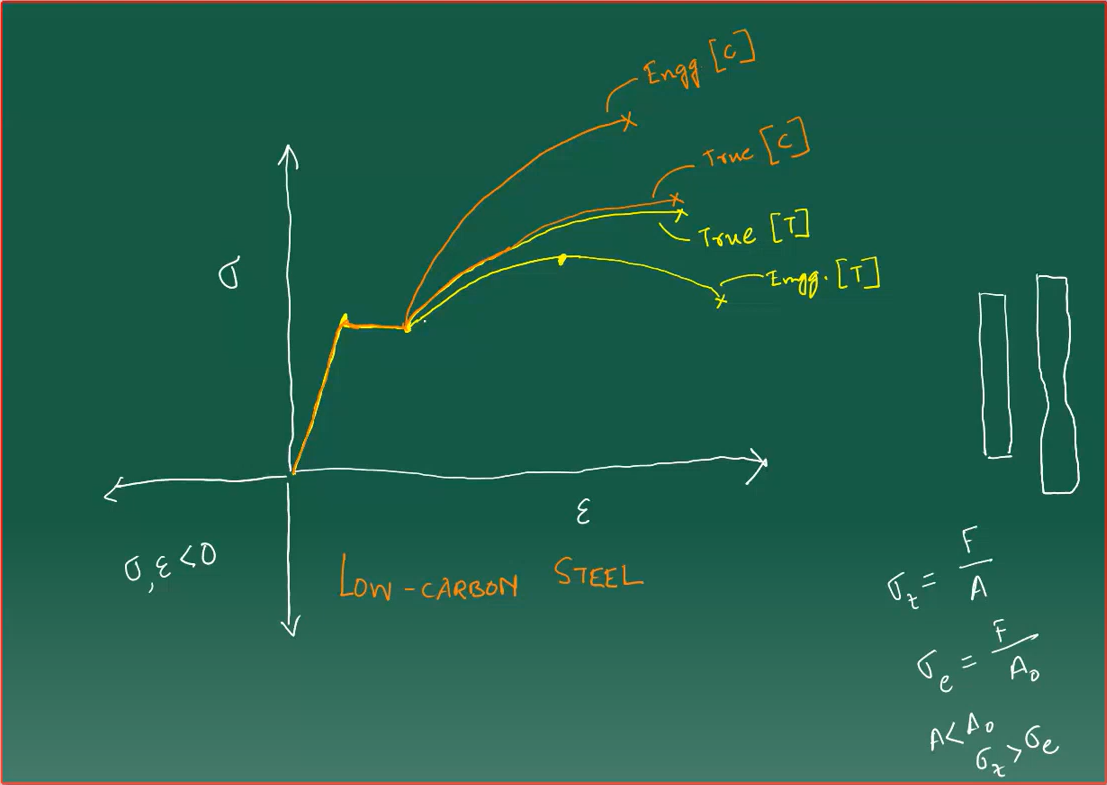 Engg. [C]
True [C]
True [T]
Engg. [T]
σ
ε
σ, ε < 0
LOW-CARBON STEEL
σ_t = F/A
σ_e = F/A₀
A < A₀
σ_t > σ_e